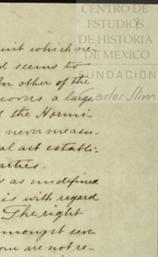 CENTRO DE
ESTUDIOS
DE HISTORIA
DE MEXICO
FUNDACIÓN
Carlos Slim
uit which re-
d seems to
In other of the
covers a large
f the Hormi-
never measu-
al act establi-
arties.
is as undefined
is with regard
The right
amongst seve
one are not re-